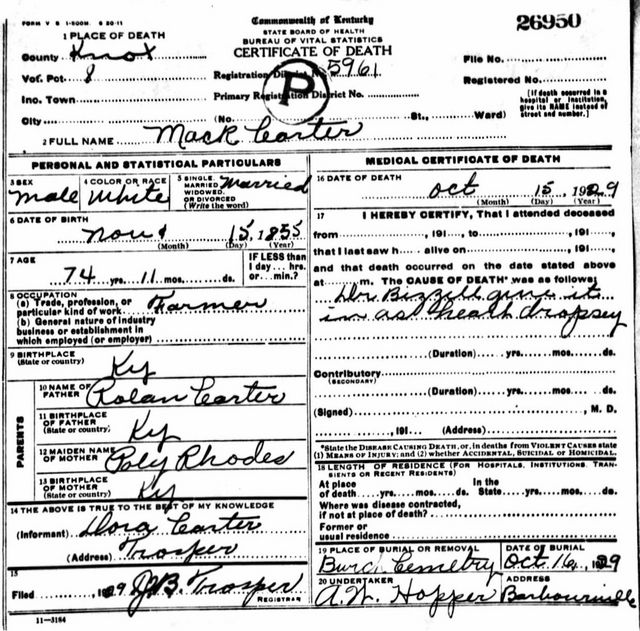 FORM V S 1-500M. 5 20-11
Commonwealth of Kentucky
26950
STATE BOARD OF HEALTH
BUREAU OF VITAL STATISTICS
CERTIFICATE OF DEATH
1 PLACE OF DEATH
County Knox
Vot. Pct 8
Inc. Town
City
Registration District No. 5961
Primary Registration District No.
P
(No. St., Ward)
File No.
Registered No.
[If death occurred in a hospital or institution, give its NAME instead of street and number.]
2 FULL NAME Mack Carter
PERSONAL AND STATISTICAL PARTICULARS
3 SEX Male
4 COLOR OR RACE White
5 SINGLE, MARRIED, WIDOWED, OR DIVORCED (Write the word) Married
6 DATE OF BIRTH
Nov 15, 1855
(Month) (Day) (Year)
7 AGE
74 yrs. 11 mos. ds.
IF LESS than 1 day... hrs. or... min.?
8 OCCUPATION
(a) Trade, profession, or particular kind of work Farmer
(b) General nature of industry business or establishment in which employed (or employer)
9 BIRTHPLACE
(State or country) Ky
PARENTS
10 NAME OF FATHER Rolan Carter
11 BIRTHPLACE OF FATHER (State or country) Ky
12 MAIDEN NAME OF MOTHER Poly Rhodes
13 BIRTHPLACE OF MOTHER (State or country) Ky
14 THE ABOVE IS TRUE TO THE BEST OF MY KNOWLEDGE
(Informant) Dora Carter
(Address) Trosper
15
Filed 1929 J.B. Trosper
REGISTRAR
11-3184
MEDICAL CERTIFICATE OF DEATH
16 DATE OF DEATH
Oct 15, 1929
(Month) (Day) (Year)
17 I HEREBY CERTIFY, That I attended deceased
from , 191 , to , 191 ,
that I last saw h alive on , 191 ,
and that death occurred on the date stated above
at m. The CAUSE OF DEATH* was as follows:
Dr. give it
in as heath dropsey
(Duration) yrs. mos. ds.
Contributory
(SECONDARY)
(Duration) yrs. mos. ds.
(Signed) , M. D.
, 191 (Address)
*State the DISEASE CAUSING DEATH, or, in deaths from VIOLENT CAUSES state (1) MEANS OF INJURY; and (2) whether ACCIDENTAL, SUICIDAL or HOMICIDAL.
18 LENGTH OF RESIDENCE (FOR HOSPITALS, INSTITUTIONS, TRANSIENTS OR RECENT RESIDENTS)
At place of death yrs. mos. ds. In the State yrs. mos. ds.
Where was disease contracted, if not at place of death?
Former or usual residence
19 PLACE OF BURIAL OR REMOVAL
Burch Cemetry
DATE OF BURIAL
Oct 16, 1929
20 UNDERTAKER
A.W. Hopper
ADDRESS
Barbourville